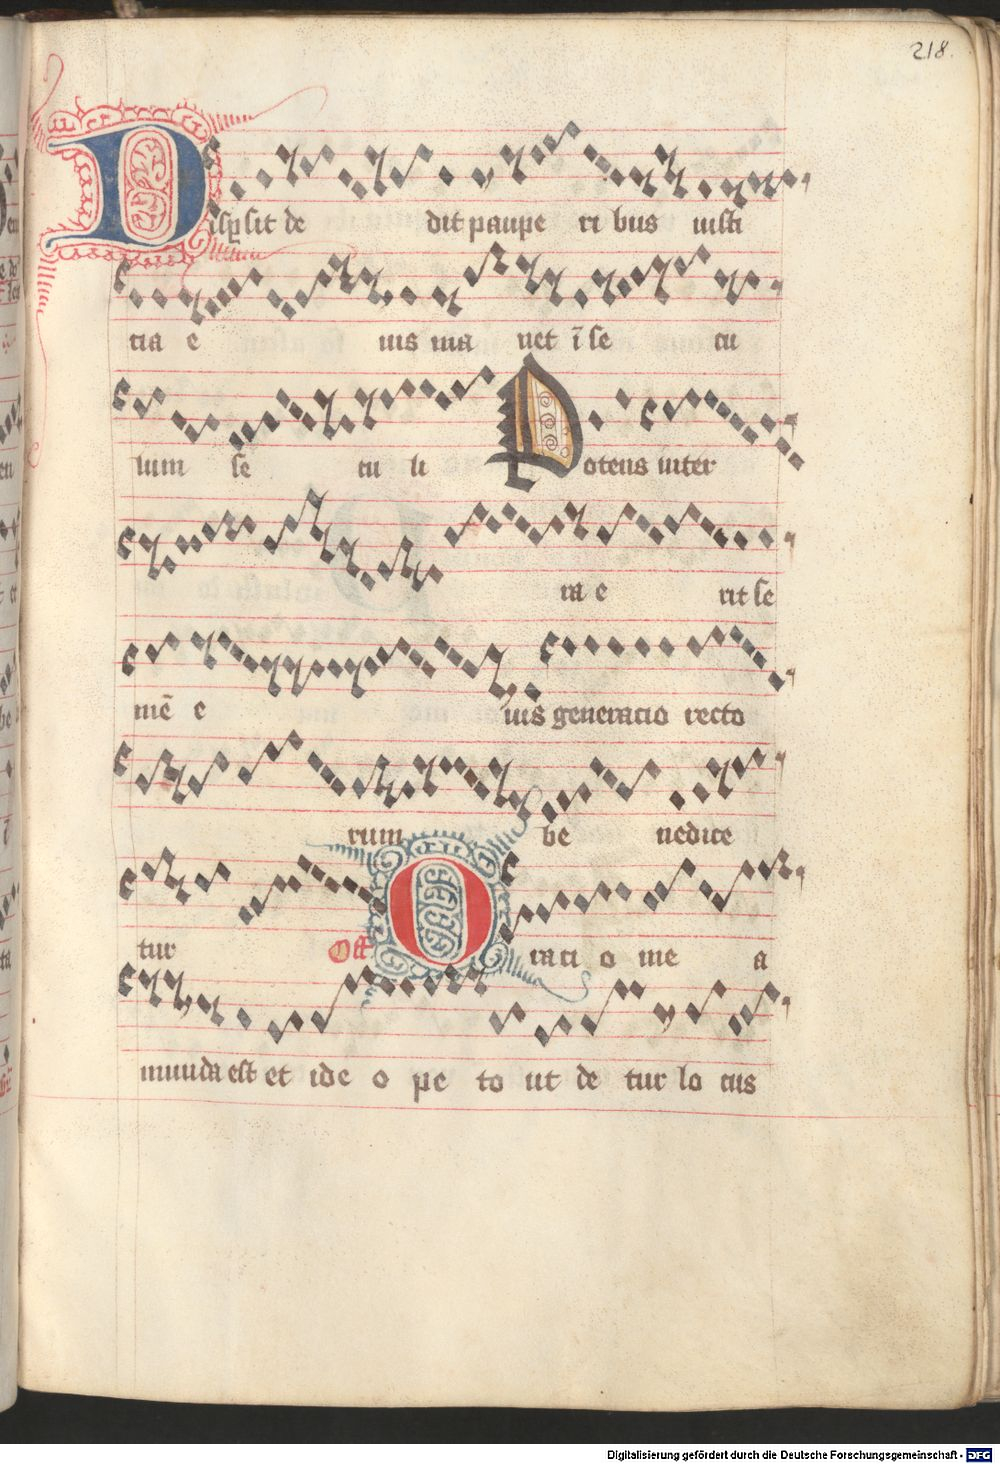 218.
Disp̱sit de dit paupe ri bus iusti
cia e ius ma net ī se cu
lum se cu li Potens in ter
ra e rit se
mē e ius generacio recto
rum be nedice
tur Off Oraci o me a
munda est et ide o pe to ut de tur lo cus
Digitalisierung gefördert durch die Deutsche Forschungsgemeinschaft - DFG